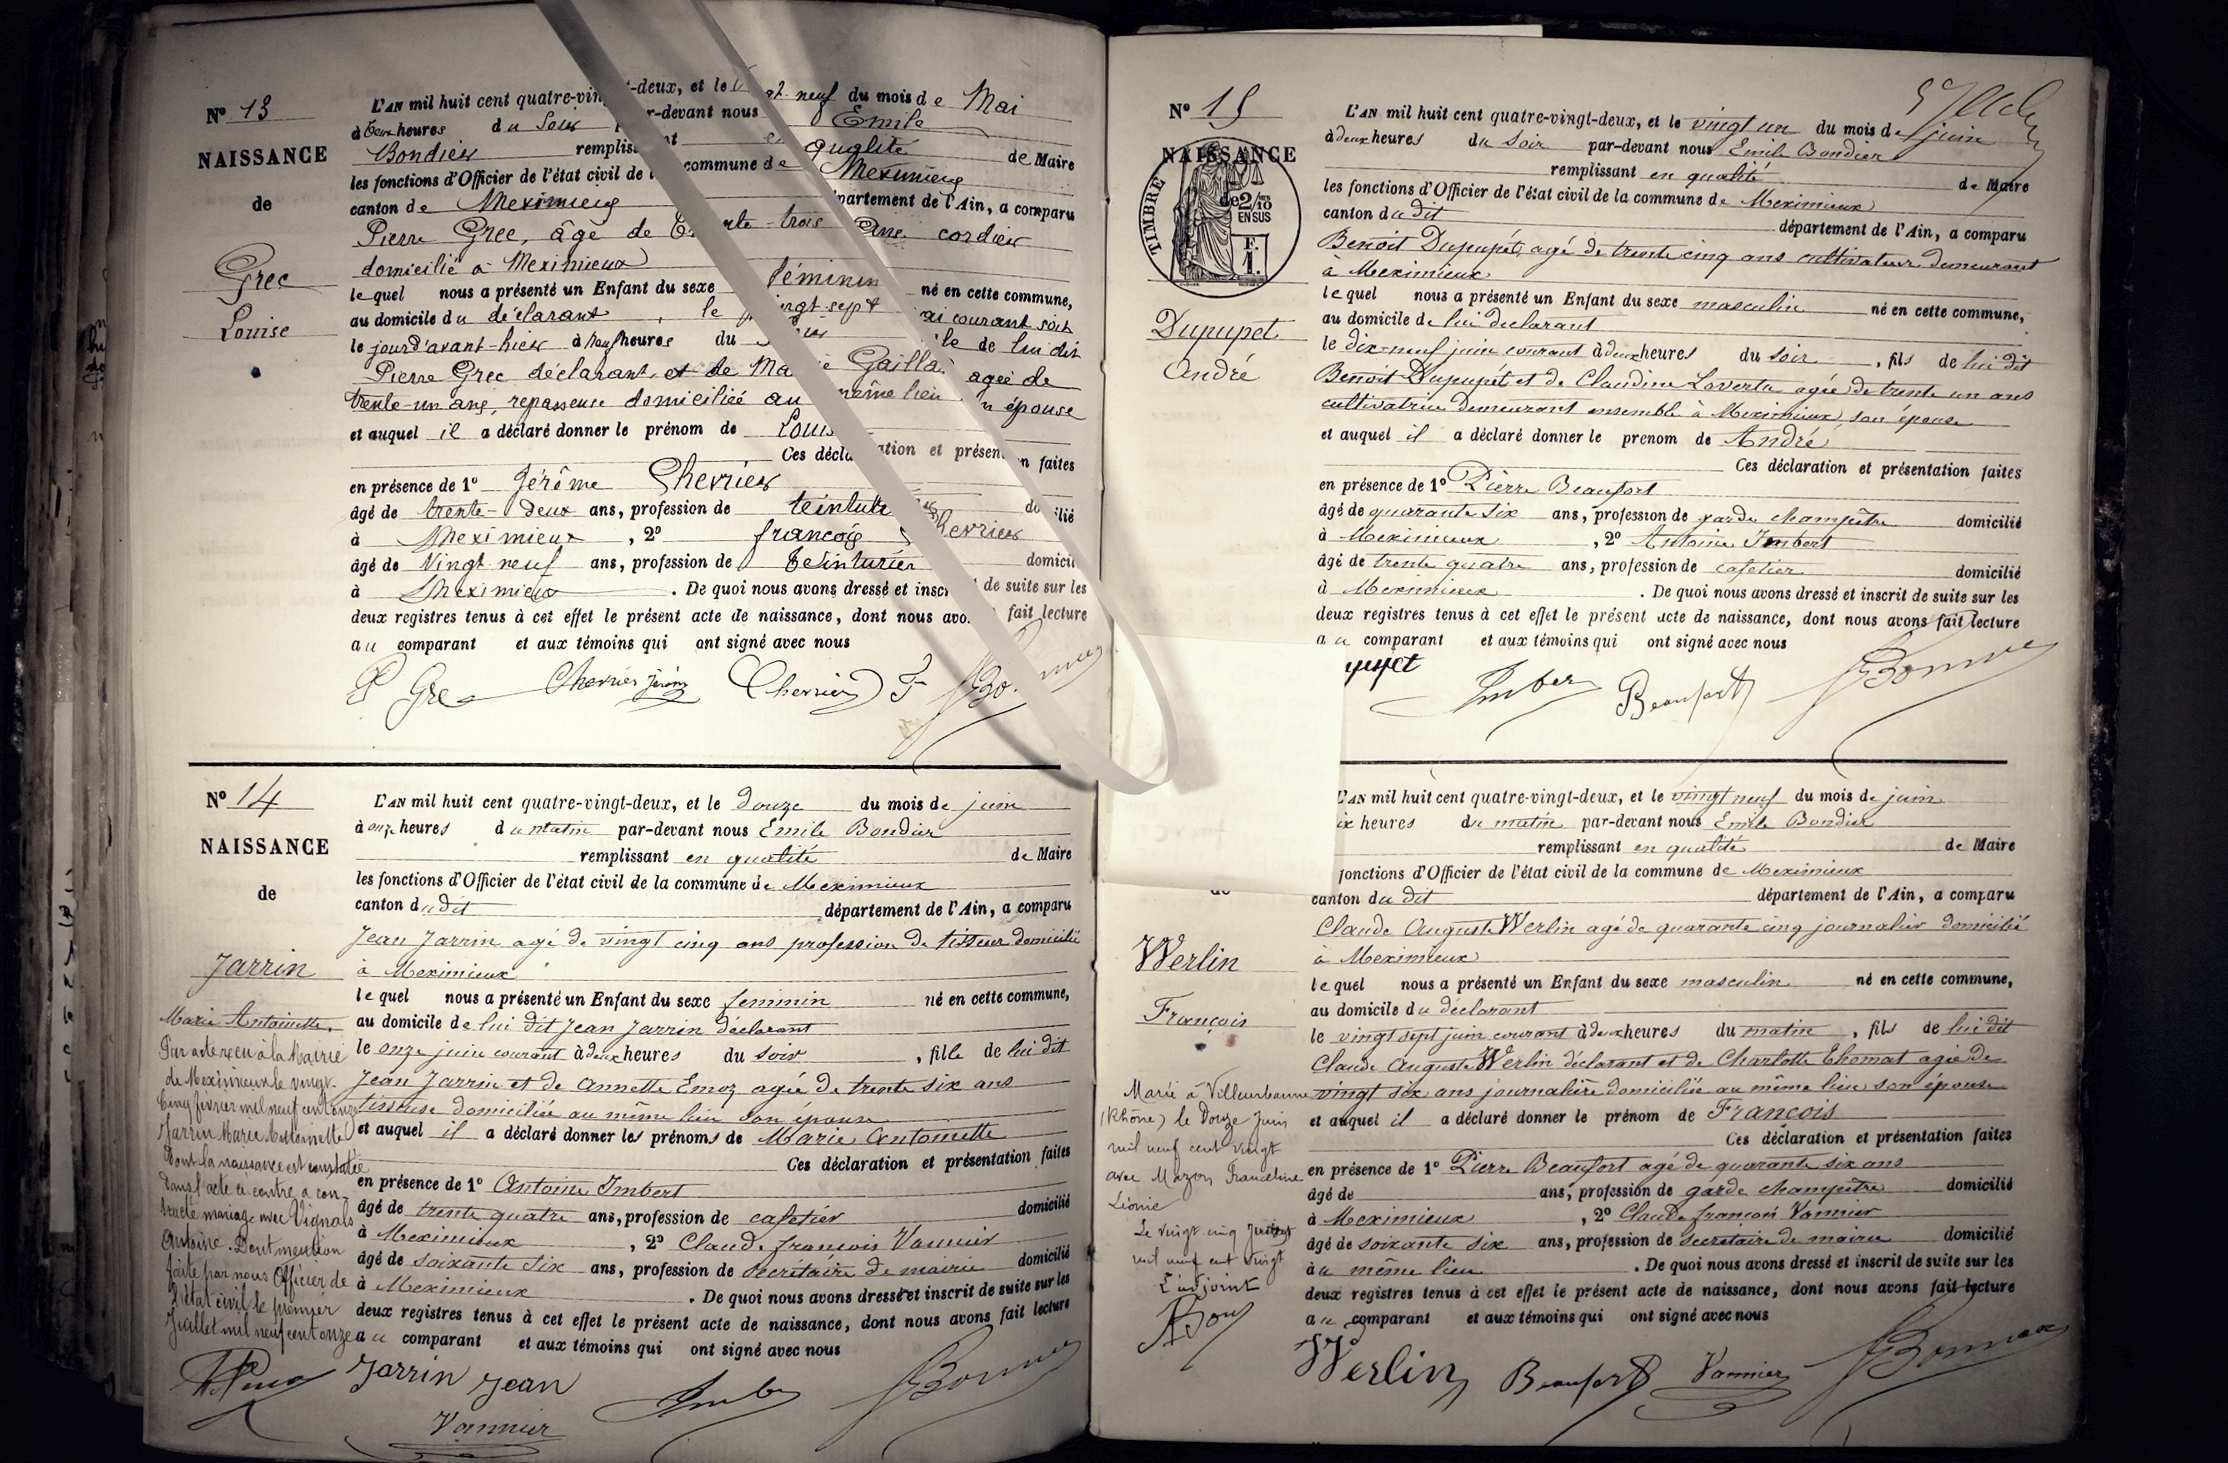 N° 13
NAISSANCE
de
Grec
Louise
L'AN mil huit cent quatre-vin -deux, et le gt neuf du mois de Mai
à heures du Soir r-devant nous Emile
Bondier remplis nt en qualité de Maire
les fonctions d'Officier de l'état civil de commune de Meximieux
canton de Meximieux partement de l'Ain, a comparu
Pierre Grec, âgé de te-trois Ans cordier
domicilié à Meximieux
lequel nous a présenté un Enfant du sexe féminin né en cette commune,
au domicile du déclarant, le ingt-sept ai courant soit
le jour d'avant-hier à neuf heures du de lui dit
Pierre Grec déclarant et de Ma Gailla agée de
trente-un ans, repasseuse domiciliée au même lieu n épouse
et auquel il a déclaré donner le prénom de Louis
Ces décla ation et présen n faites
en présence de 1° Jérôme Cherrier
âgé de trente-deux ans, profession de teintu do ilié
à Meximieux, 2° françois Cherrier
âgé de Vingt neuf ans, profession de teinturier domicil
à Meximieux. De quoi nous avons dressé et inscr de suite sur les
deux registres tenus à cet effet le présent acte de naissance, dont nous avo fait lecture
au comparant et aux témoins qui ont signé avec nous
P Grec Cherrier Jérome Cherrier F
N° 14
NAISSANCE
de
Jarrin
Marie Antoinette.
Par acte reçu à la Mairie
de Meximieux le vingt-
cinq février mil neuf cent onze
Jarrin Marie Antoinette
dont la naissance est constatée
dans l'acte ci contre a con-
tracté mariage avec Vignals
Antoine. Dont mention
faite par nous Officier de
l'état civil le premier
Juillet mil neuf cent onze
L'AN mil huit cent quatre-vingt-deux, et le douze du mois de juin
à onze heures du matin par-devant nous Emile Bondier
remplissant en qualité de Maire
les fonctions d'Officier de l'état civil de la commune de Meximieux
canton du dit département de l'Ain, a comparu
Jean Jarrin agé de vingt cinq ans profession de tisseur domicilié
à Meximieux
lequel nous a présenté un Enfant du sexe feminin né en cette commune,
au domicile de lui dit Jean Jarrin déclarant
le onze juin courant à deux heures du soir, fille de lui dit
Jean Jarrin et de Annette Emoz agée de trente six ans
tisseuse domiciliée au même lieu son épouse
et auquel il a déclaré donner les prénoms de Marie Antoinette
Ces déclaration et présentation faites
en présence de 1° Antoine Imbert
âgé de trente quatre ans, profession de cafetier domicilié
à Meximieux, 2° Claude françois Vannier
âgé de soixante six ans, profession de secrétaire de mairie domicilié
à Meximieux. De quoi nous avons dressé et inscrit de suite sur les
deux registres tenus à cet effet le présent acte de naissance, dont nous avons fait lecture
au comparant et aux témoins qui ont signé avec nous
Jarrin Jean
Vannier
N° 15
NAISSANCE
de
TIMBRE
2/10
EN SUS
F.
1.
Dupupet
André
L'AN mil huit cent quatre-vingt-deux, et le vingt un du mois de juin
à deux heures du soir par-devant nous Emile Bondier
remplissant en qualité de Maire
les fonctions d'Officier de l'état civil de la commune de Meximieux
canton du dit département de l'Ain, a comparu
Benoit Dupupét, agé de trente cinq ans cultivateur demeurant
à Meximieux
lequel nous a présenté un Enfant du sexe masculin né en cette commune,
au domicile de lui declarant
le dix-neuf juin courant à deux heures du soir, fils de lui dit
Benoit Dupupét et de Claudine Laverta agée de trente un ans
cultivatrice demeurant ensemble à Meximieux, son épouse
et auquel il a déclaré donner le prenom de André
Ces déclaration et présentation faites
en présence de 1° Pierre Beaufort
âgé de quarante six ans, profession de garde champêtre domicilié
à Meximieux, 2° Antoine Imbert
âgé de trente quatre ans, profession de cafetier domicilié
à Meximieux. De quoi nous avons dressé et inscrit de suite sur les
deux registres tenus à cet effet le présent acte de naissance, dont nous avons fait lecture
au comparant et aux témoins qui ont signé avec nous
Imber Beaufort
de
Werlin
François
Marié à Villeurbanne
(Rhône) le Douze Juin
mil neuf cent vingt
avec Mazon Franceline
Léonie
Le vingt cinq
mil neuf cent vingt
L'adjoint
L'AN mil huit cent quatre-vingt-deux, et le vingt neuf du mois de juin
ix heures du matin par-devant nous Emile Bondier
remplissant en qualité de Maire
fonctions d'Officier de l'état civil de la commune de Meximieux
canton du dit département de l'Ain, a comparu
Claude Auguste Werlin agé de quarante cinq journalier domicilié
à Meximieux
lequel nous a présenté un Enfant du sexe masculin né en cette commune,
au domicile du déclarant
le vingt sept juin courant à deux heures du matin, fils de lui dit
Claude Auguste Werlin déclarant et de Charlotte Thomat agée de
vingt six ans journalière domiciliée au même lieu son épouse
et auquel il a déclaré donner le prénom de François
Ces déclaration et présentation faites
en présence de 1° Pierre Beaufort agé de quarante six ans
âgé de ans, profession de garde champêtre domicilié
à Meximieux, 2° Claude françois Vannier
âgé de soixante six ans, profession de secretaire de mairie domicilié
à au même lieu. De quoi nous avons dressé et inscrit de suite sur les
deux registres tenus à cet effet le présent acte de naissance, dont nous avons fait lecture
au comparant et aux témoins qui ont signé avec nous
Werlin Beaufort Vannier